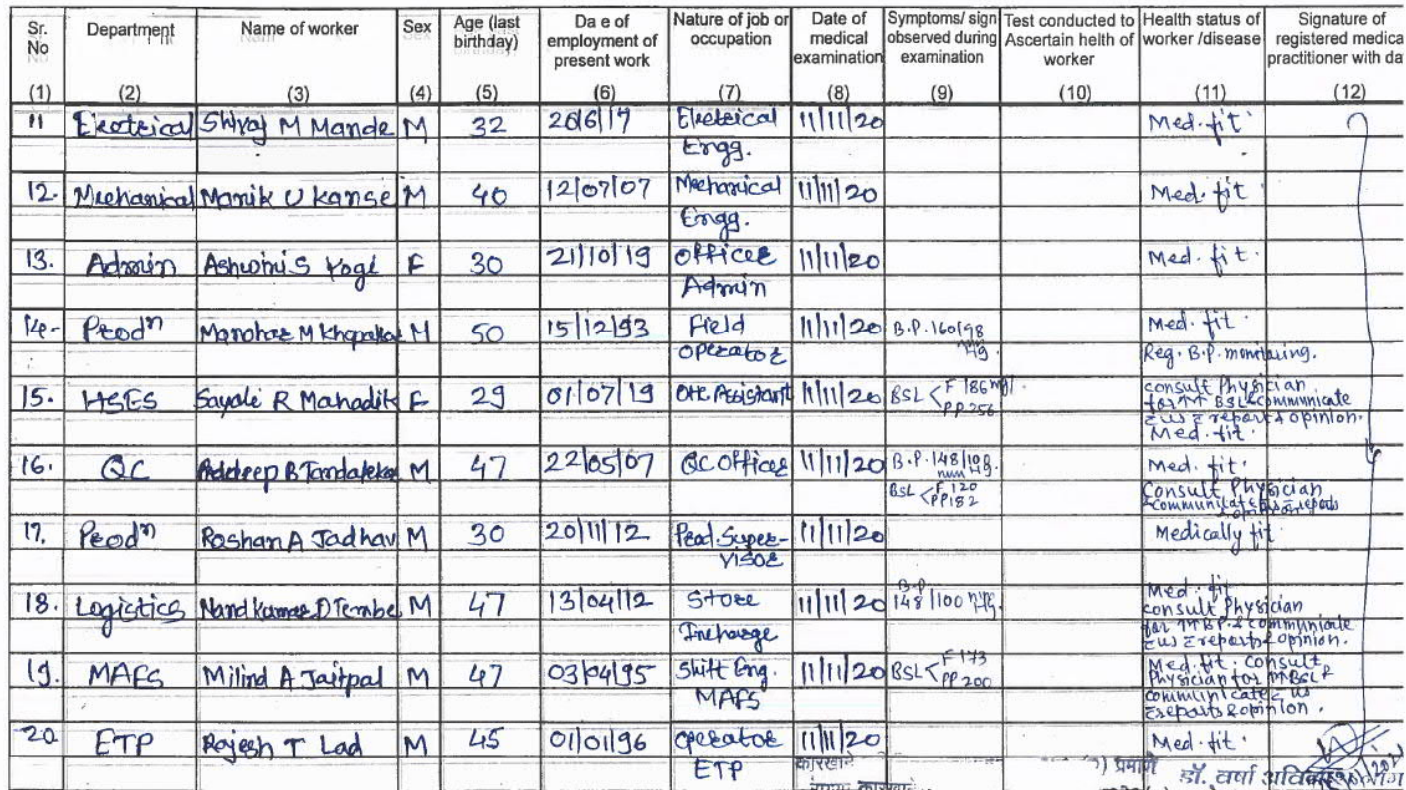 Sr. No Department Name of worker Sex Age (last birthday) Da e of employment of present work Nature of job or occupation Date of medical examination Symptoms/ sign observed during examination Test conducted to Ascertain helth of worker Health status of worker /disease Signature of registered medica practitioner with da
(1) (2) (3) (4) (5) (6) (7) (8) (9) (10) (11) (12)
11 Electrical Shivaj M Mande M 32 20/6/17 Electrical 11/11/20 Med. fit
Engg.
12. Mechanical Manik U Kanse M 40 12/07/07 Mechanical 11/11/20 Med. fit
Engg.
13. Admin Ashwini S Yogi F 30 21/10/19 Officer 11/11/20 Med. fit.
Admin
14. Prodn Manohar M Khopakar M 50 15/12/93 Field 11/11/20 B.P. 160/98 Med. fit
Operator mm Hg. Reg. B.P. monitoring.
15. HSES Sayali R Mahadik F 29 01/07/19 OHC Assistant 11/11/20 BSL < F 186 mg/. Consult Physician
PP 256 for ↑↑ BSL & communicate
c us c report & opinion.
Med. fit.
16. QC B Tandalekar M 47 22/05/07 QC Officer 11/11/20 B.P. 148/108 Med. fit.
mm Hg.
BSL < F 120 Consult Physician
PP 182 & communicate c us c reports
& opinion
17. Prodn Roshan A Jadhav M 30 20/11/12 Prod. Super- 11/11/20 Medically fit
visor
18. Logistics Nandkumar D Tembe M 47 13/04/12 Store 11/11/20 B.P. 148/100 mm Hg. Med. fit
Incharge consult Physician
for ↑↑ B.P. & communicate
c us c reports & opinion.
19. MAFS Milind A Jaitpal M 47 03/04/95 Shift Eng. 11/11/20 BSL < F 173 Med. fit. Consult
MAFS PP 200 Physician for ↑↑ BSL &
communicate c us
c reports & opinion.
20 ETP Rajesh T Lad M 45 01/01/96 Operator 11/11/20 Med. fit.
ETP
कारखाने प्रमाणे डॉ. वर्षा